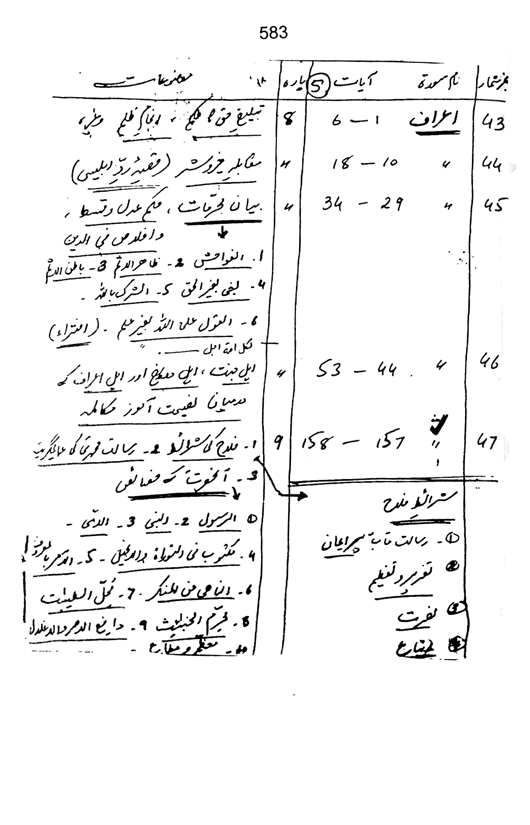 583
نمبرشمار نام سورۃ آیات (5) پارہ موضوعات
43 اعراف 1 – 6 8 تبلیغِ حق کا حکم ، انجامِ ظلم وغیرہ
44 〃 10 – 18 〃 مقابلہ خیر و شر (قصۂ ردِّ ابلیس)
45 〃 29 – 34 〃 بیانِ محرمات ، حکم عدل و قسط ،
و اخلاص فی الدین
1. الفواحش 2- ظاہر الاثم 3- باطن الاثم
4. بغی بغیر الحق 5- الشرک باللہ -
6- القول علی اللہ بغیر علم - (افتراء)
46 〃 44 – 53 〃 اہلِ جنت ، اہلِ دوزخ اور اہلِ اعراف کے
درمیان نصیحت آموز مکالمہ
47 〃 157 – 158 9 1- فلاح کی شرائط 2- رسالت محمدی کی عالمگیریت
3- آنحضرت کے خصائص
شرائطِ فلاح
① الرسول 2- النبی 3- الامی -
① - رسالت مآب پر ایمان
4- مکتوب فی التوراۃ والانجیل - 5- الآمر بالمعروف
② تعزیر و تعظیم
6- الناہی عن المنکر - 7- مُحِلّ الطیبات
③ نصرت
8- محرّم الخبائث 9- دافع الاصر والاغلال
④ اتباع
10- معظّم و مطاع -